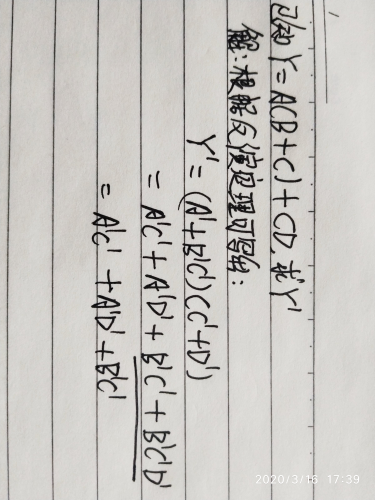 已知 Y = A(B+C)+CD, 求Y'
解: 根据反演定理可写出:
Y' = (A'+B'C')(C'+D')
= A'C' + A'D' + B'C' + B'C'D'
= A'C' + A'D' + B'C'
2020/3/16 17:39